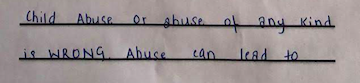 Child Abuse or abuse of any kind
is WRONG. Abuse can lead to